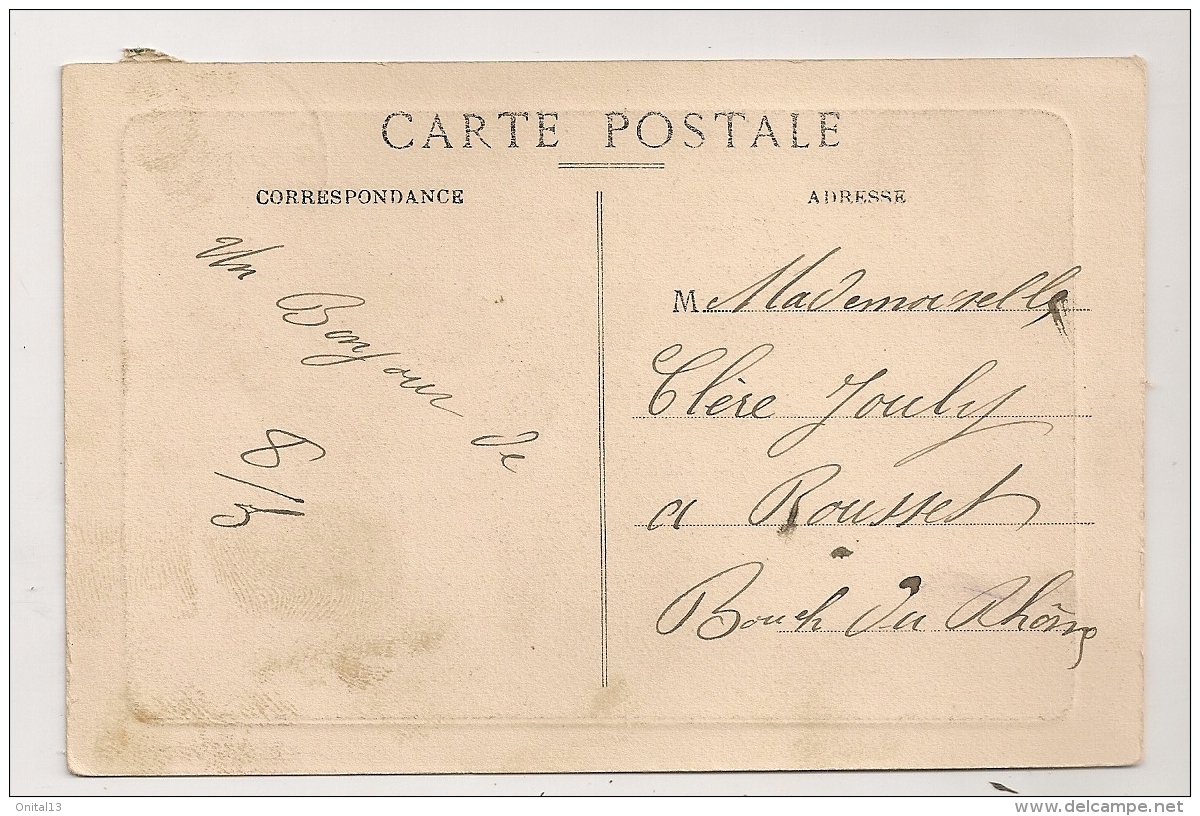 CARTE POSTALE
CORRESPONDANCE
ADRESSE
Un Bonjour de
M. Mademoiselle
Clère Jouly
a Rousset
Bouch du Rhône
Onital13
www.delcampe.net